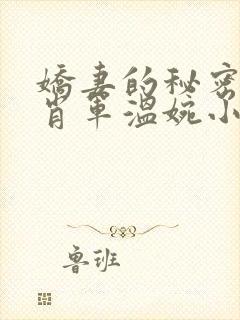 娇妻的秘密
肖军温婉小
鲁班